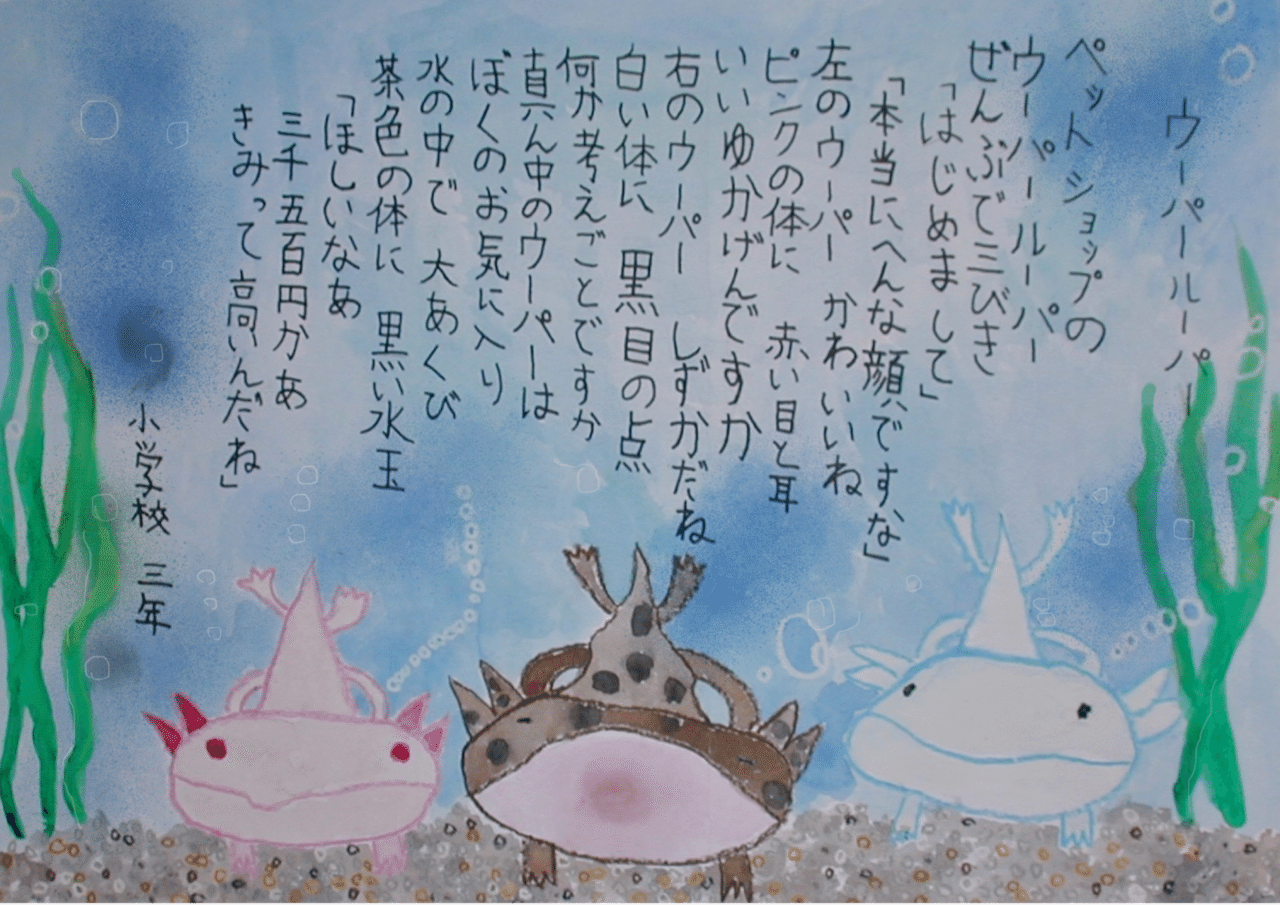 ウーパールーパー
ペットショップの
ウーパールーパー
ぜんぶで三びき
「はじめまして」
「本当にへんな顔ですな」
左のウーパー　かわいいね
ピンクの体に　赤い目と耳
いいゆかげんですか
右のウーパー　しずかだね
白い体に　黒目の点
何か考えごとですか
真ん中のウーパーは
ぼくのお気に入り
水の中で　大あくび
茶色の体に　黒い水玉
「ほしいなあ
三千五百円かぁ
きみって高いんだね」
小学校　三年